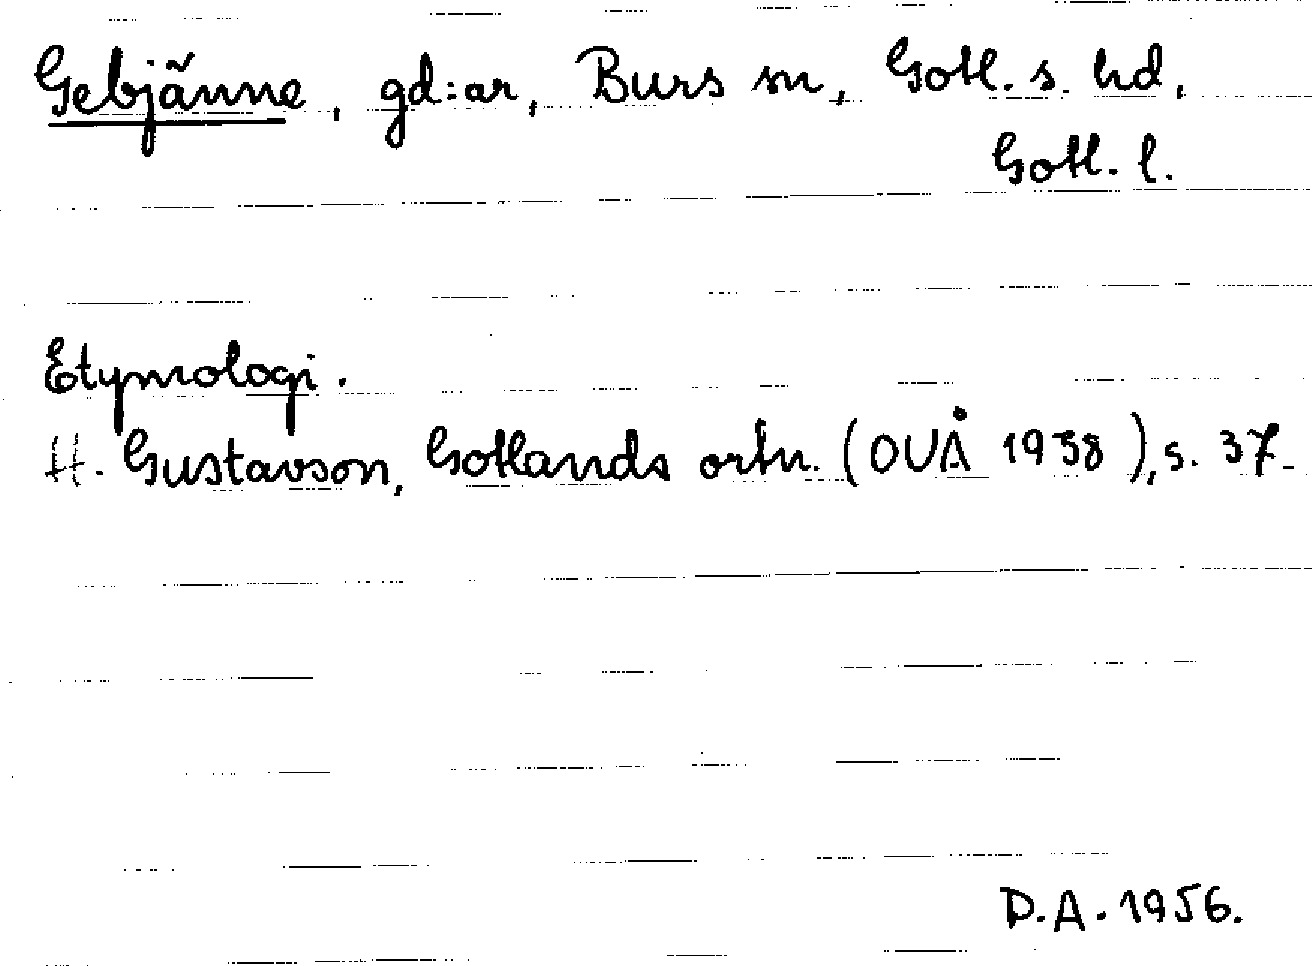 Gebjänne, gd:ar, Burs sn, Gotl. s. hd,
Gotl. l.
Etymologi.
H. Gustavson, Gotlands ortn. (OUÅ 1938), s. 37.
D.A. 1956.